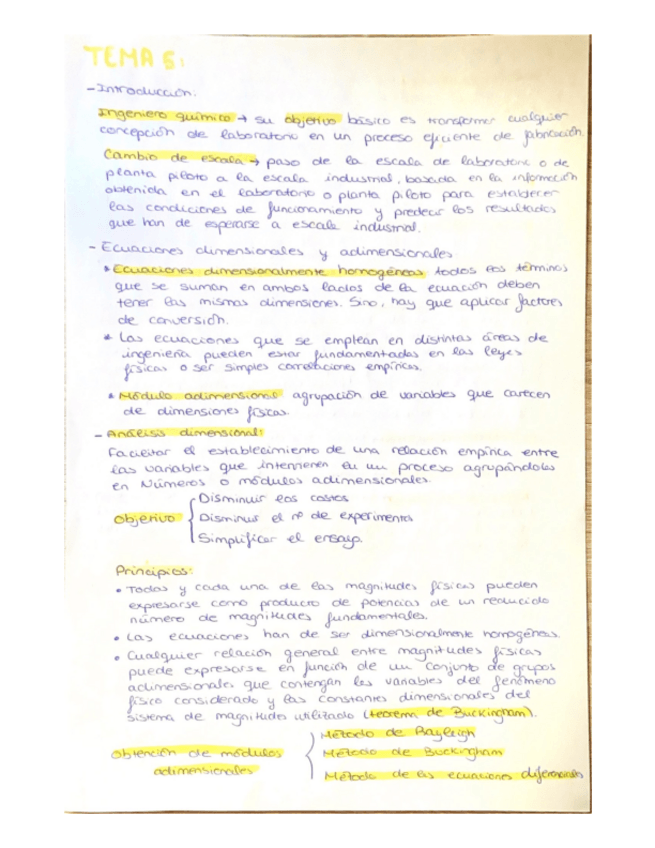 TEMA 5:
- Introducción.
Ingeniero químico → su objetivo básico es transformar cualquier
concepción de laboratorio en un proceso eficiente de fabricación.
Cambio de escala → paso de la escala de laboratorio o de
planta piloto a la escala industrial, basada en la información
obtenida en el laboratorio o planta piloto para establecer
las condiciones de funcionamiento y predecir los resultados
que han de esperarse a escala industrial.
- Ecuaciones dimensionales y adimensionales
* Ecuaciones dimensionalmente homogéneas todos los términos
que se suman en ambos lados de la ecuación deben
tener las mismas dimensiones. Sino, hay que aplicar factores
de conversión.
* Las ecuaciones que se emplean en distintas áreas de
ingeniería pueden estar fundamentadas en las leyes
físicas o ser simples correlaciones empíricas.
* Módulo adimensional agrupación de variables que carecen
de dimensiones físicas.
- Análisis dimensional:
Facilitar el establecimiento de una relación empírica entre
las variables que intervienen en un proceso agrupándolas
en Números o módulos adimensionales.
Disminuir los costes
Objetivo { Disminuir el nº de experimentos
Simplificar el ensayo.
Principios:
• Todas y cada una de las magnitudes físicas pueden
expresarse como producto de potencias de un reducido
número de magnitudes fundamentales.
• Las ecuaciones han de ser dimensionalmente homogéneas.
• Cualquier relación general entre magnitudes físicas
puede expresarse en función de un conjunto de grupos
adimensionales que contengan las variables del fenómeno
físico considerado y las constantes dimensionales del
sistema de magnitudes utilizado (teorema de Buckingham).
Método de Rayleigh
Obtención de módulos { Método de Buckingham
adimensionales
Método de las ecuaciones diferenciales